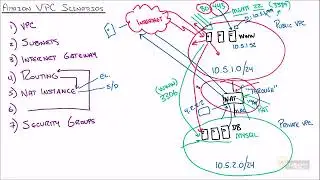 AMAZON VPC SCENARIOS
1) VPC
2) SUBNETS
3) INTERNET GATEWAY
4) ROUTING
5) NAT INSTANCE
6)
7) SECURITY GROUPS
S/D
INTERNET
80
443
22
WWW
PUBLIC VPC
10.5.1.0/24
NAT
"THROUGH"
(WWW)
3306
DB
MYSQL
PRIVATE VPC
10.5.2.0/24